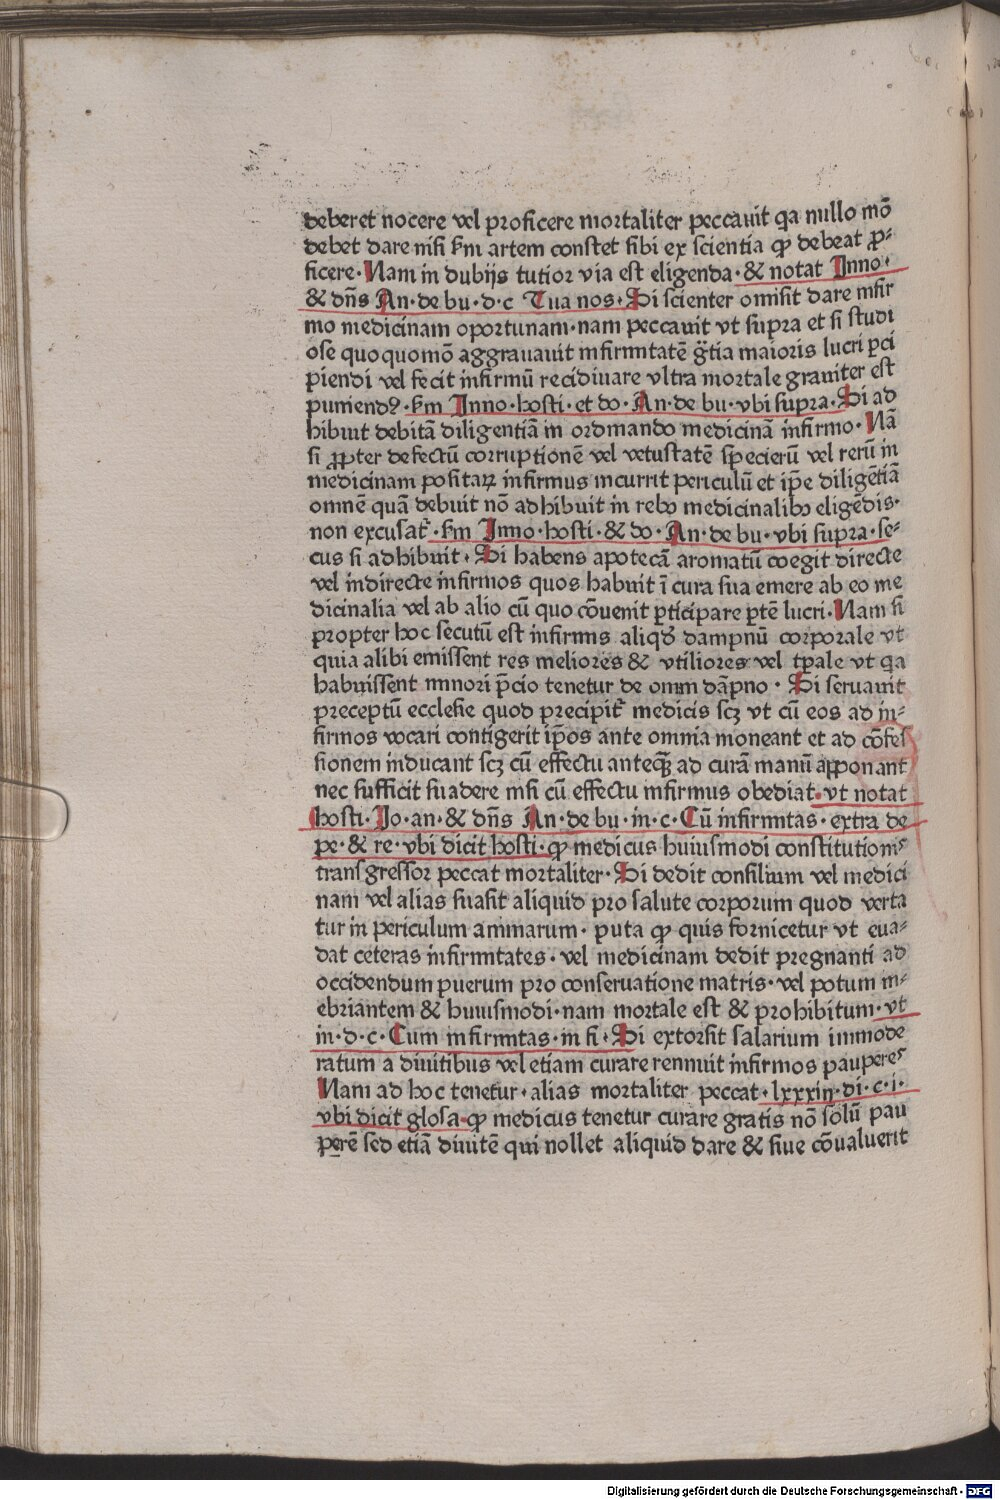 deberet nocere vel proficere mortaliter peccauit qa nullo mō
debet dare nisi ẜm artem constet sibi ex scientia ꝙ debeat ꝓ⸗
ficere· Nam in dubijs tutior via est eligenda· & notat Inno·
& dn̄s An· de bu· d· c Tua nos· Si scienter omisit dare infir
mo medicinam oportunam· nam peccauit vt supra et si studi
ose quoquomō aggrauauit infirmitatē gr̄tia maioris lucri ꝑci
piendi vel fecit infirmū recidiuare vltra mortale grauiter est
puniendꝰ· ẜm Inno· hosti· et do· An· de bu· vbi supra· Si ad
hibuit debitā diligentiā in ordinando medicinā infirmo· Nā
si ꝓpter defectū corruptionē vel vetustatē specierū vel rerū in
medicinam positaꝝ infirmus incurrit periculū et ip̄e diligētiā
omnē quā debuit nō adhibuit in rebꝰ medicinalibꝰ eligēdis·
non excusat̄· ẜm Inno· hosti· & do· An· de bu· vbi supra· se⸗
cus si adhibuit· Si habens apotecā aromatū coegit directe
vel indirecte infirmos quos habuit ī cura sua emere ab eo me
dicinalia vel ab alio cū quo cōuenit ꝑticipare ꝑtē lucri· Nam si
propter hoc secutū est infirmis aliqd̄ dampnū corporale vt
quia alibi emissent res meliores & vtiliores vel tp̄ale vt qa
habuissent minori p̄cio tenetur de omni dāpno· Si seruauit
preceptū ecclesie quod precipit̄ medicis scꝫ vt cū eos ad in⸗
firmos vocari contigerit ip̄os ante omnia moneant et ad cōfes
sionem inducant scꝫ cū effectu anteqꝫ ad curā manū apponant
nec sufficit suadere nisi cū effectu infirmus obediat· vt notat
hosti· Jo· an· & dn̄s An· de bu· in· c· Cū infirmitas· extra de
pe· & re· vbi dicit hosti· ꝙ medicus huiusmodi constitutionis
transgressor peccat mortaliter· Si dedit consilium vel medici
nam vel alias suasit aliquid pro salute corporum quod verta
tur in periculum animarum· puta ꝙ quis fornicetur vt eua⸗
dat ceteras infirmitates· vel medicinam dedit pregnanti ad
occidendum puerum pro conseruatione matris· vel potum in⸗
ebriantem & huiusmodi· nam mortale est & prohibitum· vt
in· d· c· Cum infirmitas· in fi· Si extorsit salarium immode
ratum a diuitibus vel etiam curare rennuit infirmos pauperes
Nam ad hoc tenetur· alias mortaliter peccat· lxxxiij· di· c· i·
vbi dicit glosa ꝙ medicus tenetur curare gratis nō solū pau
perē sed etiā diuitē qui nollet aliquid dare & siue cōualuerit
Digitalisierung gefördert durch die Deutsche Forschungsgemeinschaft - DFG